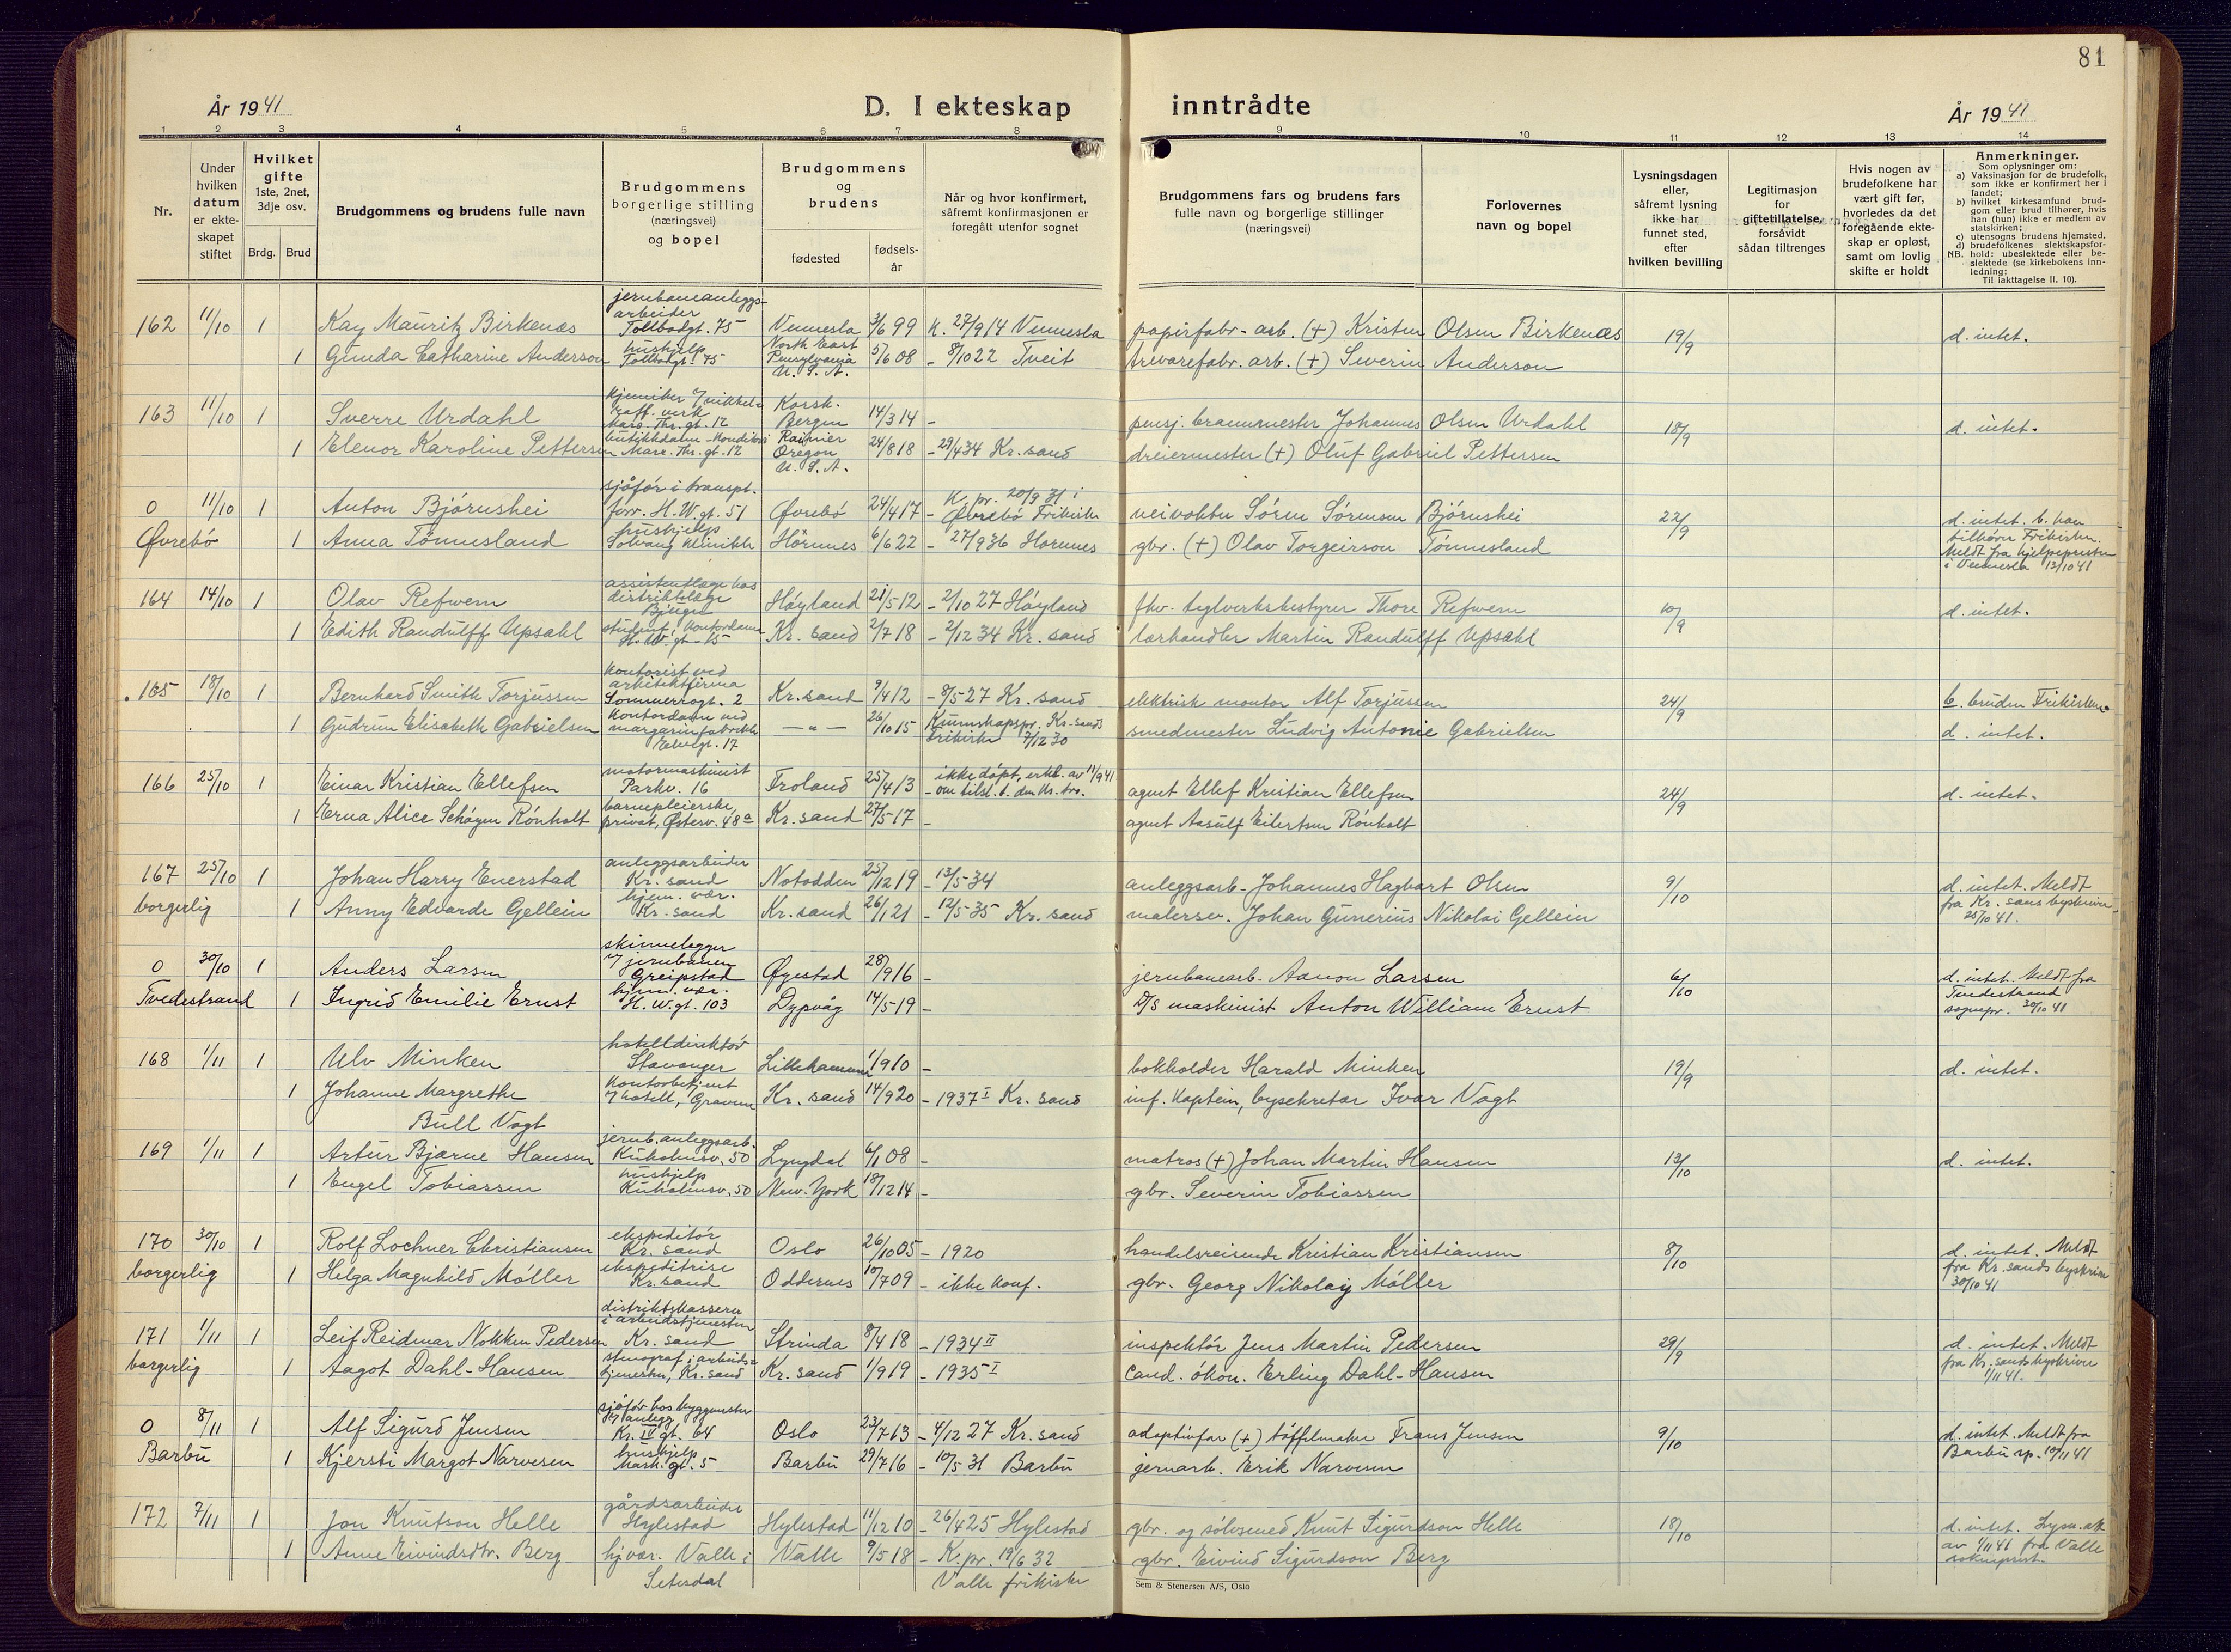 81
År 1941
D. I ekteskap inntrådte
År 1941
1 2 3 4 5 6 7 8 9 10 11 12 13 14
Nr.
Under hvilken datum er ekteskapet stiftet
Hvilket gifte 1ste, 2net, 3dje osv.
Brdg. Brud
Brudgommens og brudens fulle navn
Brudgommens borgerlige stilling (næringsvei) og bopel
Brudgommens og brudens
fødested
fødselsår
Når og hvor konfirmert, såfremt konfirmasjonen er foregått utenfor sognet
Brudgommens fars og brudens fars fulle navn og borgerlige stillinger (næringsvei)
Forlovernes navn og bopel
Lysningsdagen eller, såfremt lysning ikke har funnet sted, efter hvilken bevilling
Legitimasjon for giftetillatelse, forsåvidt sådan tiltrenges
Hvis nogen av brudefolkene har vært gift før, hvorledes da det foregående ekteskap er opløst, samt om lovlig skifte er holdt
Anmerkninger.
Som oplysninger om:
a) Vaksinasjon for de brudefolk, som ikke er konfirmert her i landet;
b) hvilket kirkesamfund brudgom eller brud tilhører, hvis han (hun) ikke er medlem av statskirken;
c) utensogns brudens hjemsted.
d) brudefolkenes slektskapsforhold: ubeslektede eller beslektede (se kirkebokens innledning;
NB.
Til iakttagelse II. 10).
162 11/10 1 Kay Mauritz Birkenæs jernbaneanleggsarbeider Tollbodgt. 75 Vennesla 3/6 99 K. 27/9 14 Vennesla papirfabr. arb. (+) Kristen Olsen Birkenæs 19/9 d. intet.
1 Gunda Catharine Anderson hushjelp Tollbodgt. 75 North East Pensylvania U.S.A. 5/6 08 - 8/10 22 Tveit trevarefabr. arb. (+) Severin Anderson
163 11/10 1 Sverre Urdahl kjemiker v/ nikkelraff. verk Marc. Thr. gt. 12 Korsk. Bergen 14/3 14 - pensj. brannmester Johannes Olsen Urdahl 18/9 d. intet.
1 Elenor Karoline Pettersen butikkdame - konditori Marc. Thr. gt. 12 Rainier Oregon U.S.A. 24/8 18 - 29/4 34 Kr.sand dreiermester (+) Oluf Gabriel Pettersen
0 11/10 1 Anton Bjørnshei sjåfør i transpt. forr. H. W. gt. 51 Øvrebø 24/4 17 - K. pr. 20/9 31 i Øvrebø Frikirke veivokter Søren Sørensen Bjørnshei 22/9 d. intet. b. han tilhører Frikirken.
Øvrebø 1 Anna Tønnesland hushjelp Solvang klinikk Hornnes 6/6 22 - 27/9 36 Hornnes gbr. (+) Olav Torgeirson Tønnesland Meldt fra hjelpepresten i Vennesla 13/10 41
164 14/10 1 Olav Refwem assistentlæge hos distriktslæge Bjinge Høyland 21/5 12 - 2/10 27 Høyland fhv. teglverksbestyrer Thore Refwem 10/9 d. intet.
1 Edith Randulff Upsahl student, kontordame H. W. gt. 15 Kr. sand 2/7 18 - 2/12 34 Kr. sand lærhandler Martin Randulff Upsahl
165 18/10 1 Bernhard Smith Torjussen kontorist ved arkitektfirma Sommerrogt. 2 Kr.sand 9/4 12 - 8/5 27 Kr. sand elektrisk montør Alf Torjussen 24/9 b. bruden Frikirken.
1 Gudrun Elisabeth Gabrielsen kontordame ved margarinfabrikk Elvegt. 17 - " - 26/10 15 Kunnskapspr. Kr.sands Frikirke 7/12 30 smedmester Ludvig Antonie Gabrielsen d. intet.
166 25/10 1 Einar Kristian Ellefsen motormaskinist Parkv. 16 Froland 25/4 13 ikke døpt, erkl. av 11/9 41 - om tilsl. t. den kr. tro. agent Ellef Kristian Ellefsen 24/9 d. intet.
1 Erna Alice Schøyen Rønholt barnepleierske, privat, Østerv. 48a Kr. sand 27/5 17 - agent Aasulf Eilertsen Rønholt
167 25/10 1 Johan Harry Enerstad anleggsarbeider Kr. sand Notodden 25/12 19 - 13/5 34 anleggsarb. Johannes Hagbart Olsen 9/10 d. intet. Meldt fra Kr. sans byskriver 25/10 41.
borgerlig 1 Anny Edvarde Gellein hjem. vær. Kr. sand Kr. sand 26/1 21 - 12/5 35 Kr. sand malersv. Johan Gunerius Nikolai Gellein
0 30/10 1 Anders Larsen skinnelegger v/ jernbanen Greipstad Øyestad 28/9 16 - jernbanearb. Aanon Larsen 6/10 d. intet. Meldt fra Tvedestrand sognepr. 30/10 41
Tvedestrand 1 Ingrid Emilie Ernst hjem. vær. H. W. gt. 103 Dypvåg 14/5 19 - D/S maskinist Anton William Ernst
168 1/11 1 Ulv Minken hotelldirektør Stavanger Lillehammer 1/9 10 - bokholder Harald Minken 19/9 d. intet.
1 Johanne Margrethe Bull Vogt kontorbetjent v/ hotell, Gravene Kr. sand 14/9 20 - 1937 I Kr. sand inf. kaptein, bysekretær Ivar Vogt
169 1/11 1 Artur Bjarne Hansen jernb. anleggsarb. Kuholmsv. 50 Lyngdal 6/1 08 - matros (+) Johan Martin Hansen 13/10 d. intet.
1 Engel Tobiassen hushjelp Kuholmsv. 50 New-York 18/12 14 - gbr. Severin Tobiassen
170 30/10 1 Rolf Lochner Christiansen ekspeditør Kr. sand Oslo 26/10 05 - 1920 handelsreisende Kristian Kristiansen 8/10 d. intet. Meldt fra Kr. sands byskriver 30/10 41
borgerlig 1 Helga Magnhild Møller ekspeditrise Kr. sand Oddernes 10/7 09 - ikke konf. gbr. Georg Nikolay Møller
171 1/11 1 Leif Reidmar Nokken Pedersen distriktskasserer i arbeidstjenesten Kr. sand Strinda 8/4 18 - 1934 II inspektør Jens Martin Pedersen 29/9 d. intet. Meldt fra Kr. sands byskriver 1/11 41.
borgerlig 1 Aagot Dahl-Hansen stenograf i arbeidstjenesten, Kr. sand Kr. sand 1/9 19 - 1935 I Cand. økon. Erling Dahl-Hansen
0 8/11 1 Alf Sigurd Jensen sjåfør hos byggmester v/ anlegg Kr. IV gt. 64 Oslo 23/7 63 - 4/12 27 Kr. sand adoptivfar (+) tøffelmaker Frans Jensen 9/10 d. intet. Meldt fra Barbu sp. 10/11 41
Barbu 1 Kjersti Margot Narvesen hushjelp Mark. gt. 5 Barbu 29/7 16 - 10/5 31 Barbu jernarb. Erik Narvesen
172 7/11 1 Jon Knutson Helle gårdsarbeider Hylestad Hylestad 11/12 10 - 26/4 25 Hylestad gbr. og sølvsmed Knut Sigurdson Helle 18/10 d. intet. Lysn. att. av 1/11 41 fra Valle sokneprest.
1 Anne Eivindsdtr. Berg hj. vær. Valle i Setesdal Valle 9/5 18 - K. pr. 19/6 32 Valle frikirke gbr. Eivind Sigurdson Berg
Sem & Stenersen A/S, Oslo